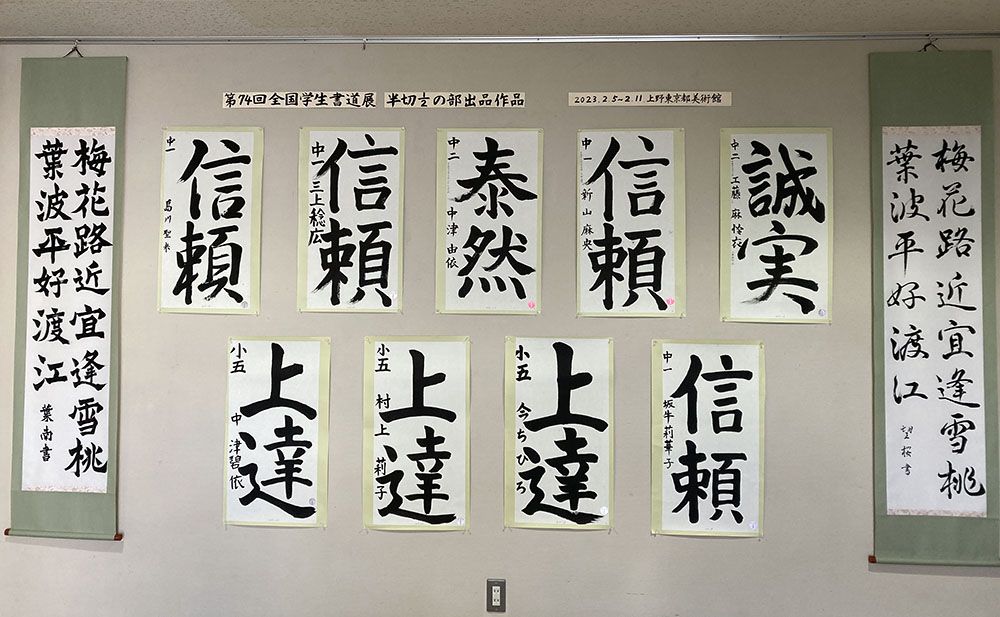 第74回全国学生書道展 半切½の部出品作品
2023.2.5~2.11 上野東京都美術館
梅花路近宜逢雪桃
葉波平好渡江
葉南書
信頼
中一
信頼
中一 三上稔広
泰然
中二 中津由依
信頼
中一 新山麻央
誠実
中二 工藤麻怜衣
上達
小五 中津碧依
上達
小五 村上莉子
上達
小五 今ちひろ
信頼
中一 坂牛莉華子
梅花路近宜逢雪桃
葉波平好渡江
望桜書